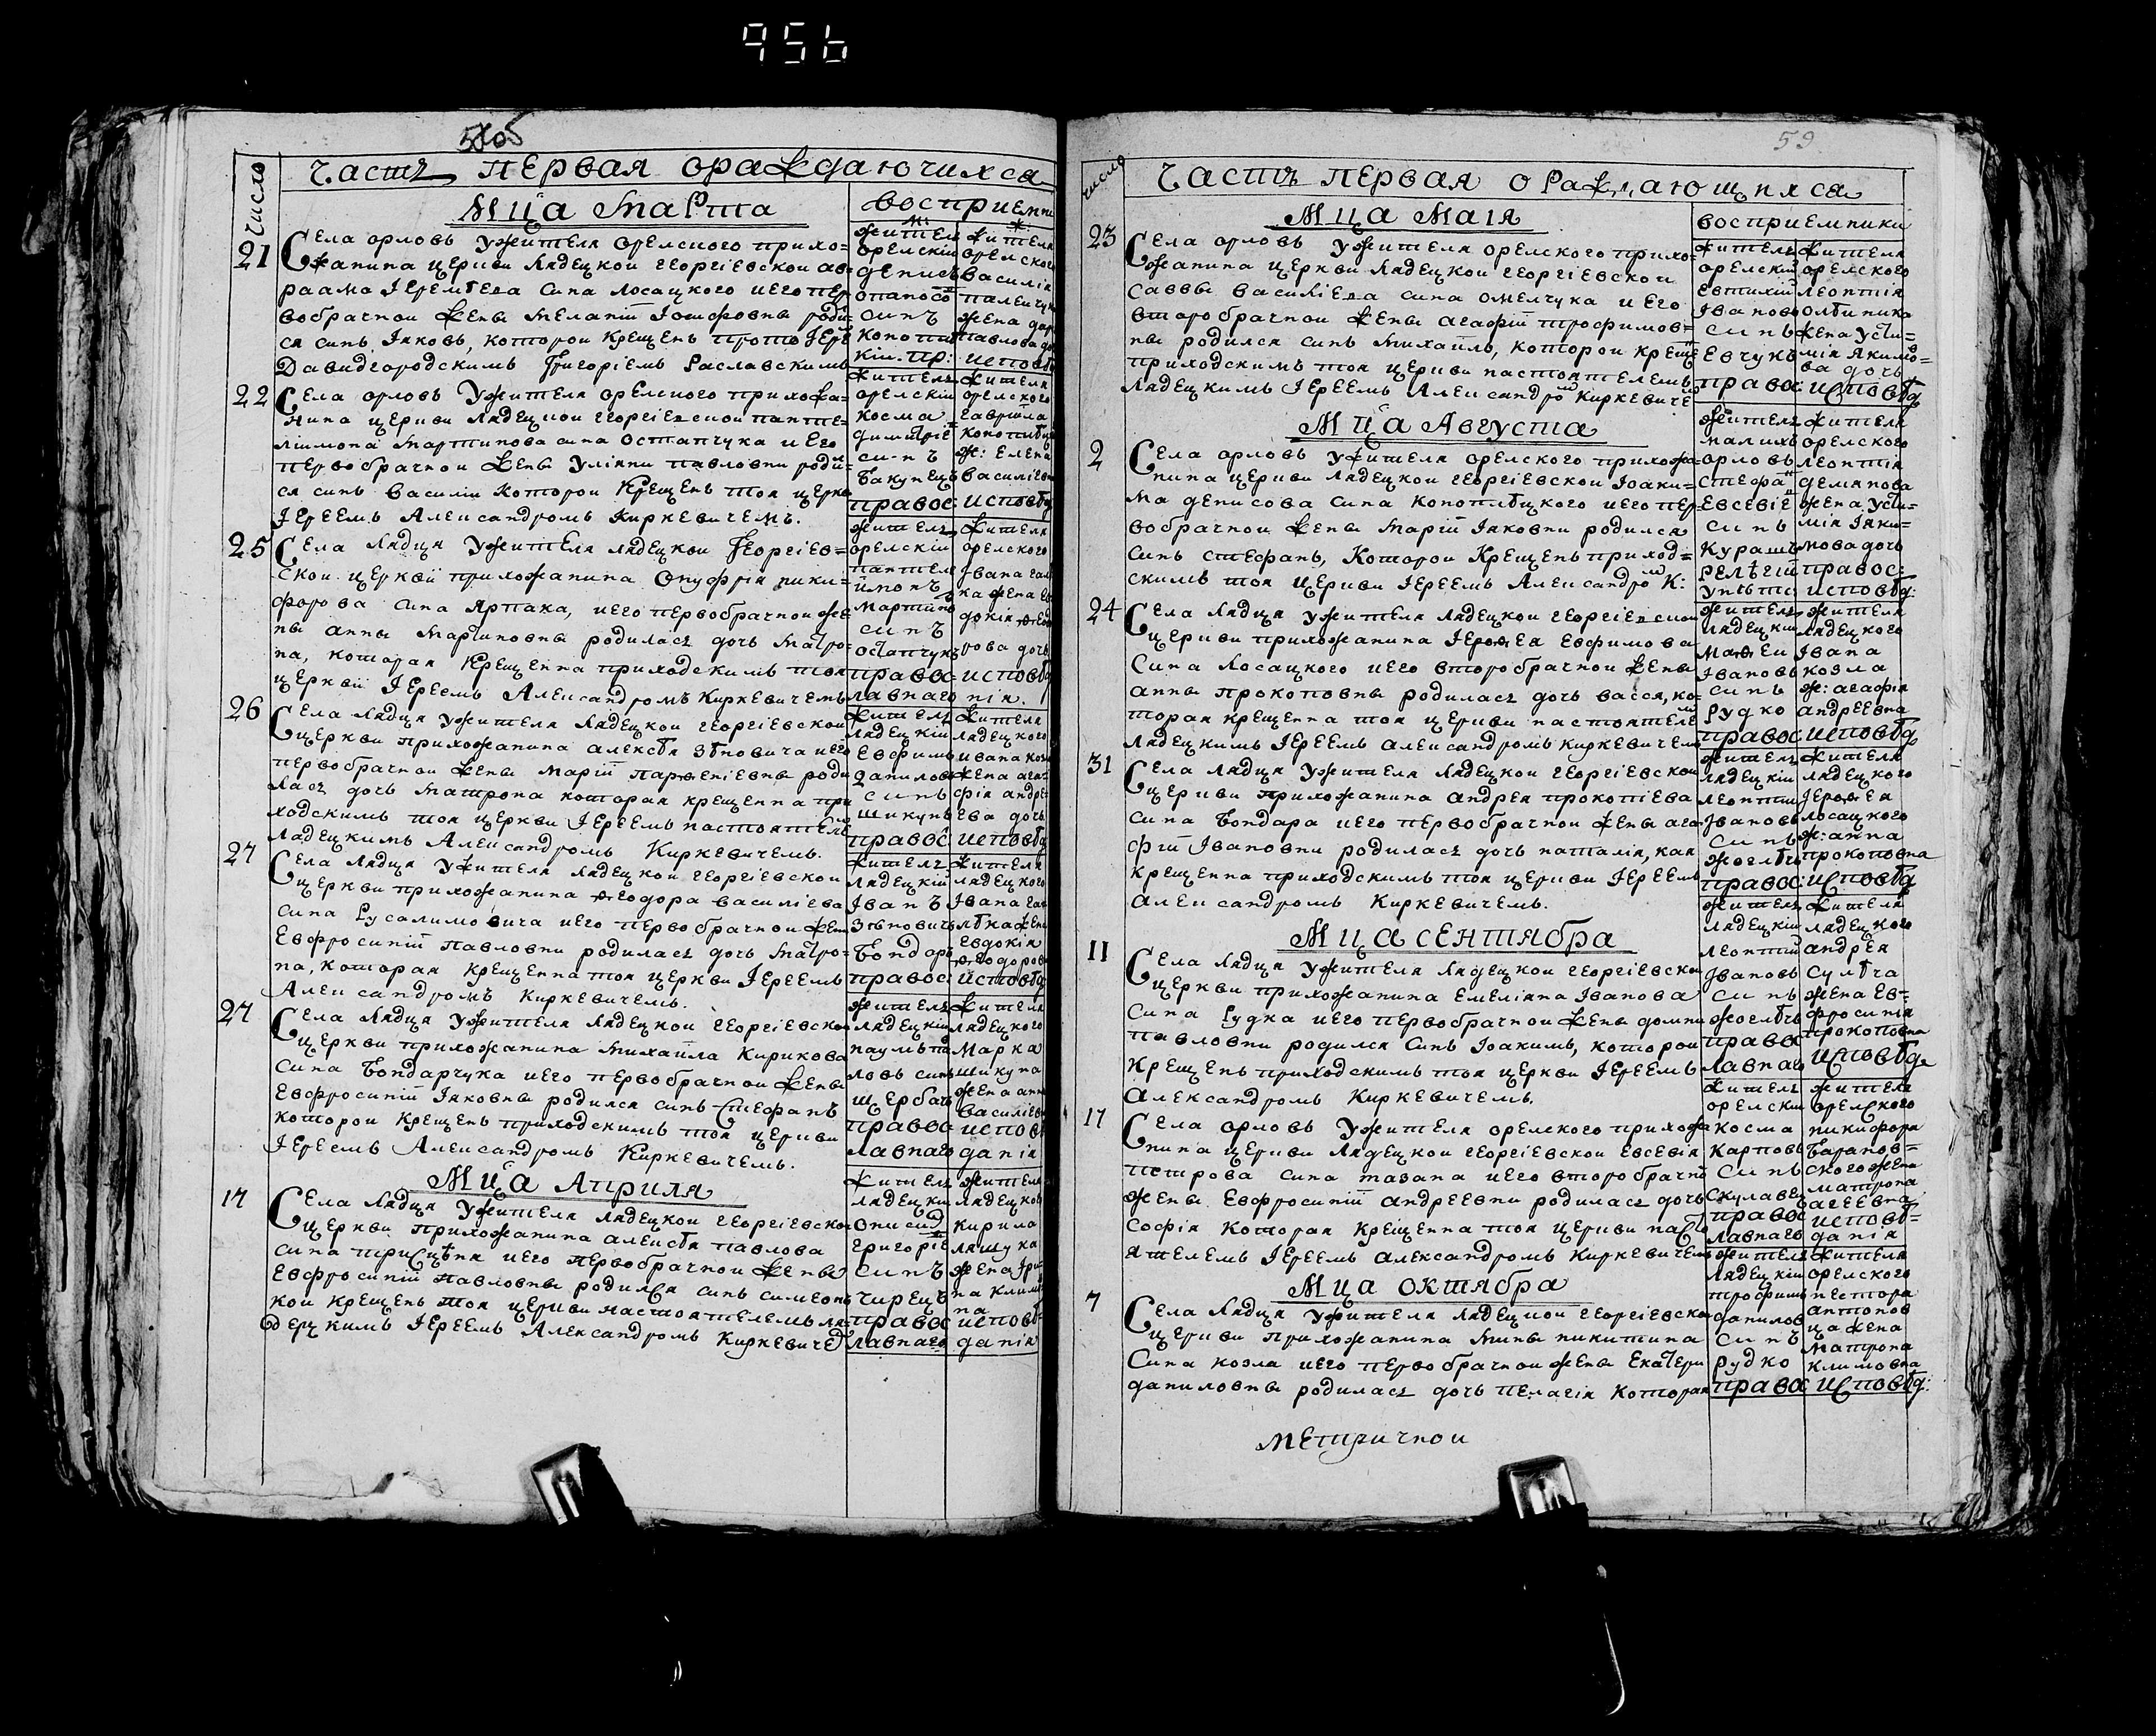 956
505
Число
Часть первая ораждаючихся
Мца Марта
восприемни
21
Села орловъ Ужителя орелского прихо=
жанина церкви Лядецкои георгіевскои ав=
раама Іеремѣева сина Лосацкого иего пер
вобрачнои жены Мелапіи Іосифовны роди
ся синъ Іяковъ, которои крещенъ протоІере
Давидгородскимъ Григоріемъ Раславскимъ
житель орелскій денисъ
синъ
пр:
жителя орелского василія
жена
исповѣ
22
Села орловъ Ужителя орелского прихожа=
нина церкви Лядецкои георгіевскои панте=
лимона Мартинова сина Остапчука иего
первобрачнои жены Улiяни павловни роди=
ся синъ василіи которои крещенъ тоя церкв
Іереемъ Александромъ Киркевичемъ.
житель
орелскіи
косма
димитріе
синъ
бакунецъ
правос:
жителя
орелского
гавріила
ж: елена
василіев
исповѣд
25
Села Лядця Ужителя лядецкои Георгіев=
скои церквіи прихожанина Онуфрія ники=
форова сина Ярпака, иего первобрачнои же
ны анны Мартиновны родилась дочь Матро=
на, которая крещенна приходскимъ тоя
церквіи Іереемъ Александромъ Киркевичемъ
житель
орелскіи
пантеле
имонъ
Мартинъ
синъ
Остапчукъ
правос=
лавнаго
жителя
орелского
Ивана
ка жена
докія
рова дочь
исповѣд
нія.
26
Села Лядця Ужителя Лядецкои георгіевскои
церкви прихожанина алексѣя Зѣновича иего
первобрачнои жены Маріи парфеніевны роди
лась дочь Матрона которая крещенна при
ходскимъ тоя церкви Іереемъ настоятеле
Лядецкимъ Александромъ Киркевичемъ.
житель
лядецкіи
Евфимъ
данилов
синъ
шикунъ
правос
жителя
лядецкого
ивана
жена ага=
фія андре
ева дочь
исповѣд
27
Села Лядця Ужителя лядецкои георгіевскои
церкви прихожанина феодора василіева
сина Русалимовича иего первобрачнои жени
Евфросиніи павловни родилась дочь Матро=
на, которая крещенна тоя церкви Іереемъ
Александромъ Киркевичемъ.
житель
лядецкіи
Іванъ
Зѣновичъ
Бондаръ
правос:
жителя
лядецкого
Івана
Евдокія
феодоров
исповѣд
27
Села Лядця Ужителя Лядецкои георгіевскои
церкви прихожанина Михаила Кирикова
сина Бондарчука иего первобрачнои жены
Евфросиніи Іяковны родился синъ Стефанъ
которои крещенъ приходскимъ тоя церкви
Іереемъ Александромъ Киркевичемъ.
житель
лядецкіи
паумъ па
ловъ синъ
щербачъ
правос
лавнаго
жителя
лядецкого
Марка
шикуна
жена анн
василіев
исповѣ
данія
Мца Априля
17
Села Лядця Ужителя лядецкои георгіевскои
церкви прихожанина алексѣя павлова
сина присцѣпя иего первобрачнои жены
Евфросиніи павловны родился синъ симеонъ
кои крещенъ тоя церкви настоятелемъ ля=
дерцкимъ Іереемъ Александромъ Киркевиче
житель
лядецки
Ониси
григоріе
синъ
чирецъ
правос
лавнаго
жителя
лядецког
кирила
ляшука
жена Ири
на Клим
на
исповѣ
данія
59
Число
Часть первая ораждающихся
Мца Маія
восприемники
23
Села орловъ Ужителя орелского прихо=
жанина церкви Лядецкои георгіевскои
саввы василіева сина омелчука иего
второбрачнои жены агафіи трофимов=
ны родился синъ Михаилъ, которои креще
приходскимъ тоя церкви настоятелемъ
лядецкимъ Іереемъ Александро Киркевиче
житель
орелскіи
евтихіи
Івановъ
синъ
Евчукъ
право:
жителя
орелского
леонтія
жена Усти=
мія Якимо=
ва дочь
исповѣд
Мца Августа
2
Села орловъ ужителя орелского прихожа=
нина церкви лядецкои георгіевскои Іоаки=
ма денисова сина конопліцкого иего пер=
вобрачнои жены Маріи Іяковни родился
синъ стефанъ, которои крещенъ приход=
скимъ тоя церкви Іереемъ Александро К:
житель
малихъ
орловъ
стефа
Евсевіе
синъ
Курашъ
релѣгіи
унѣт
жителя
орелского
леонтія
демянова
жена Усти=
мія Іяки=
мова дочь
правос:
исповѣд:
24
Села лядця ужителя лядецкои георгіевскои
церкви прихожанина Іерофея Евфимова
сина Лосацкого иего второбрачнои жены
анны прокоповны родилась дочь васся, ко=
торая крещенна тоя церкви настоятеле
лядецкимъ Іереемъ александромъ киркевичемъ
житель
лядецкіи
Матфеи
Івановъ
синъ
Рудко
правос
жителя
лядецкого
Івана
козла
ж: агафія
андреевна
исповѣд
31
Села лядця ужителя лядецкои георгіевскои
церкви прихожанина андрея прокопіева
сина Бондара иего первобрачнои жены ага=
фіи Івановни родилась дочь наталія, кая
крещенна приходскимъ тоя церкви Іереемъ
Александромъ Киркевичемъ.
житель
лядецкіи
леонтии
Івановъ
синъ
жоглѣчъ
правос:
жителя
лядецкого
Іерофея
лосацкого
ж: анна
прокоповна
исповѣд
Мца сентября
11
Села лядця ужителя Лядецкои георгіевскои
церкви прихожанина Емеліяна Іванова
сина Рудка иего первобрачнои жены домни
павловни родился синъ Іоакимъ, которои
крещенъ приходскимъ тоя церкви Іереемъ
Александромъ Киркевичемъ.
житель
лядецкіи
леонтии
Івановъ
синъ
жоглѣчъ
право
лавнаго
жителя
лядецкого
андрея
Сулѣча
жена Ев=
фросинія
прокоповна
исповѣда
17
Села орловъ ужителя орелского прихожа
нина церкви лядецкои георгіевскои Евсевія
петрова сина мазана иего второбрачно
жены Евфросиніи андреевни родилась дочь
софія которая крещенна тоя церкви насто
ятелемъ Іереемъ александромъ киркевичемъ
житель
орелскіи
косма
карповъ
синъ
Скулавец
правос
лавнаго
жителя
орелского
никифора
Баранов=
ского жена
матрона
агеевна
исповѣ=
данія
Мца октября
7
Села лядця ужителя Лядецкои георгіевскои
церкви прихожанина Мины никитина
сина козла иего первобрачнои жены Екатери
даниловны родилась дочь пелагія которая
житель
лядецкіи
трофимъ
данилов
синъ
рудко
право
жителя
орелского
нестора
антонов
ца жена
матрона
климовна
исповѣд:
метричнои